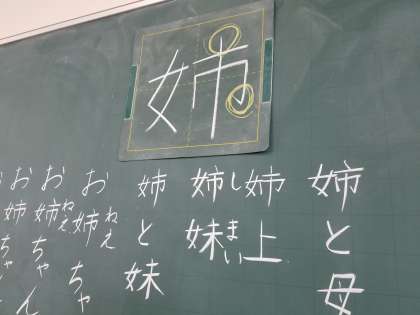 姉
姉と母
姉上
姉妹
しまい
姉と妹
お姉ちゃ
ねえ
お姉ちゃん
ねえ
お姉ちゃん